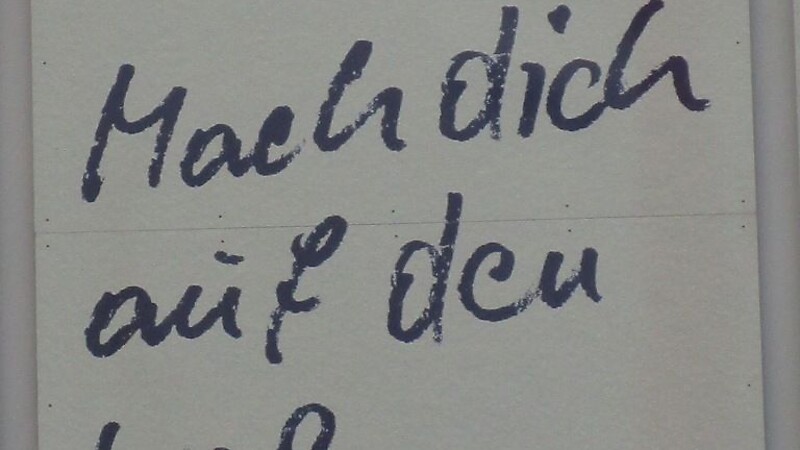 Mach dich
auf den